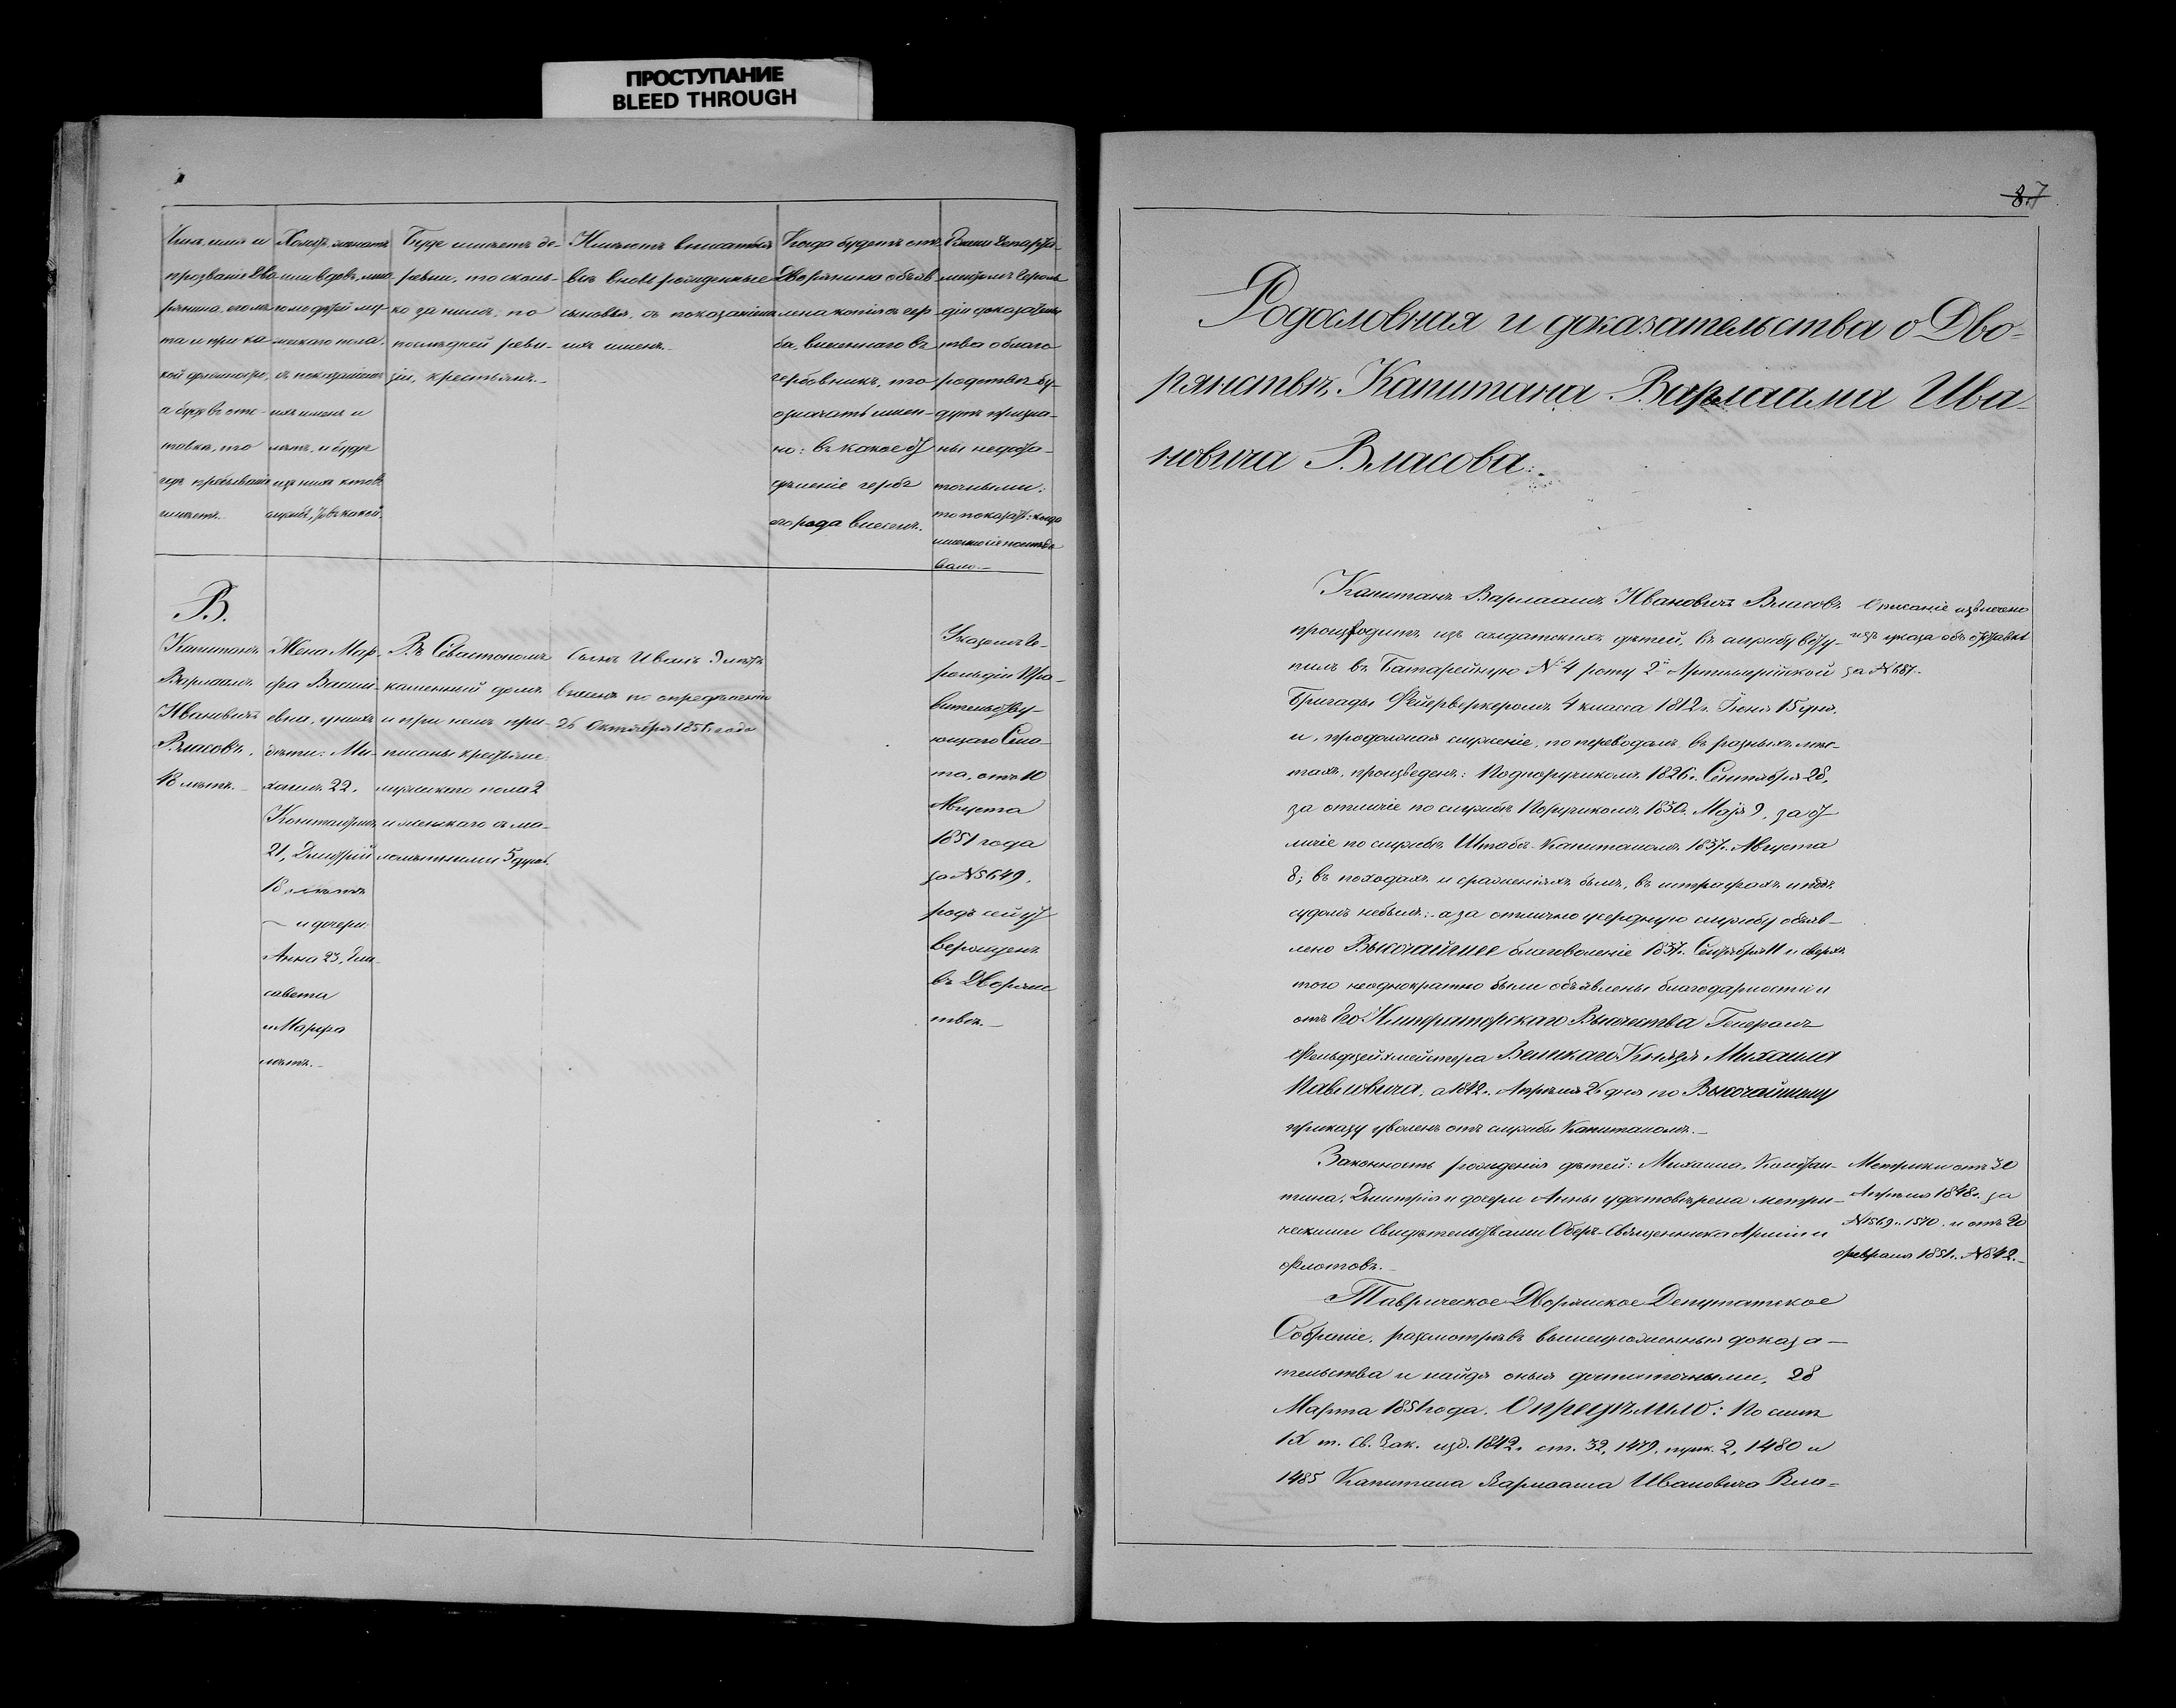 ПРОСТУПАНИЕ
BLEED THROUGH
Чинъ, имя и
прозваніе Дво-
рянина, его лѣ-
та и при ка-
кой должности,
а буде въ отс-
тавкѣ, то
гдѣ пребываніе
имѣетъ.
Холостъ, женатъ
или вдовъ, мно-
го ли дѣтей му-
жескаго пола,
съ показаніемъ
ихъ именъ и
лѣтъ, и буде
изъ нихъ кто въ
службѣ, то въ какой.
Буде имѣетъ де-
ревни, то сколь-
ко за нимъ, по
послѣдней реви-
зіи, крестьянъ.
Имѣютъ вписаться
вновь рожденные
сыновья, съ показаніемъ
ихъ именъ.
Когда будетъ отъ
Дворянина объяв-
лена копія съ гер-
ба, внесеннаго въ
гербовникъ, то
означать имен-
но: въ какое от-
дѣленіе гербъ
его рода внесенъ.
Департа-
ментомъ Героль-
діи доказатель-
ства о благо-
родствѣ бу-
дутъ призна-
ны недоста-
точными,
то показать: когда
имянно
В.
Капитанъ
Варлаамъ
Ивановичъ
Власовъ,
48 лѣтъ.
Жена Мар-
фа Васили-
евна, у нихъ
дѣти: Ми-
хаилъ 22,
Константинъ
21, Дмитрій
18 лѣтъ
и дочери:
Анна 23, Ели-
савета
и Марфа
лѣтъ.
Въ Севастополѣ
каменный домъ
и при немъ при-
писаны крестьяне:
мужескаго пола 2
и женскаго съ ма-
лолѣтними 5 душъ.
Сынъ Иванъ 3 лѣтъ
внесенъ по опредѣленію
26 Октября 1851 года
Указомъ Ге-
рольдіи Пра-
вительству-
ющаго Сена-
та, отъ 10
Августа
1851 года
за № 5649,
родъ сей ут-
вержденъ
въ Дворянс-
твѣ.
87
Родословная и доказательства о Дво-
рянствѣ, Капитана Варлаама Ива-
новича Власова.
Капитанъ Варлаамъ Ивановичъ Власовъ
произходитъ изъ солдатскихъ дѣтей, въ службу всту-
пилъ въ Батарейную № 4 роту 2й Артиллерійской
Бригады Фейерверкеромъ 4 класса 1812 г. Іюня 15 дня,
и, продолжая служеніе, по переводамъ, въ разныхъ мѣс-
тахъ, произведенъ: Подпоручикомъ 1826 г. Сентября 28,
за отличіе по службѣ Поручикомъ 1830 г. Маія 9, за от-
личіе по службѣ Штабсъ-Капитаномъ 1837 г. Августа
8; въ походахъ и сраженіяхъ былъ, въ штрафахъ и подъ
судомъ небылъ; а за отлично усердную службу объяв-
лено Высочайшее благоволеніе 1837 г. Сентября 11 и сверхъ
того неоднократно были объявлены благодарности и
отъ Его Императорскаго Высочества Генералъ
Фельдцейхмейстера Великаго Князя Михаила
Павловича, а 1842 г. Апрѣля 26 дня по Высочайшему
приказу уволенъ отъ службы Капитаномъ.
Описаніе извлечено
изъ указа объ отставкѣ
за № 687.
Законность рожденія дѣтей: Михаила, Констан-
тина, Дмитрія и дочери Анны удостовѣрена метри-
ческими свидѣтельствами Оберъ-Священника Арміи и
Флотовъ.
Метрики отъ 30
Апрѣля 1848 г. за
№ 1569, 1570 и отъ 20
Февраля 1851 г. № 842.
Таврическое Дворянское Депутатское
Собраніе, разсмотрѣвъ вышеизложенныя доказа-
тельства и найдя оныя достаточными, 28
Марта 1851 года. Опредѣлило: По силѣ
IX т. Св. Зак. изд. 1842 г. ст. 32, 1479, пунк. 2, 1480 и
1485 Капитана Варлаама Ивановича Вла-